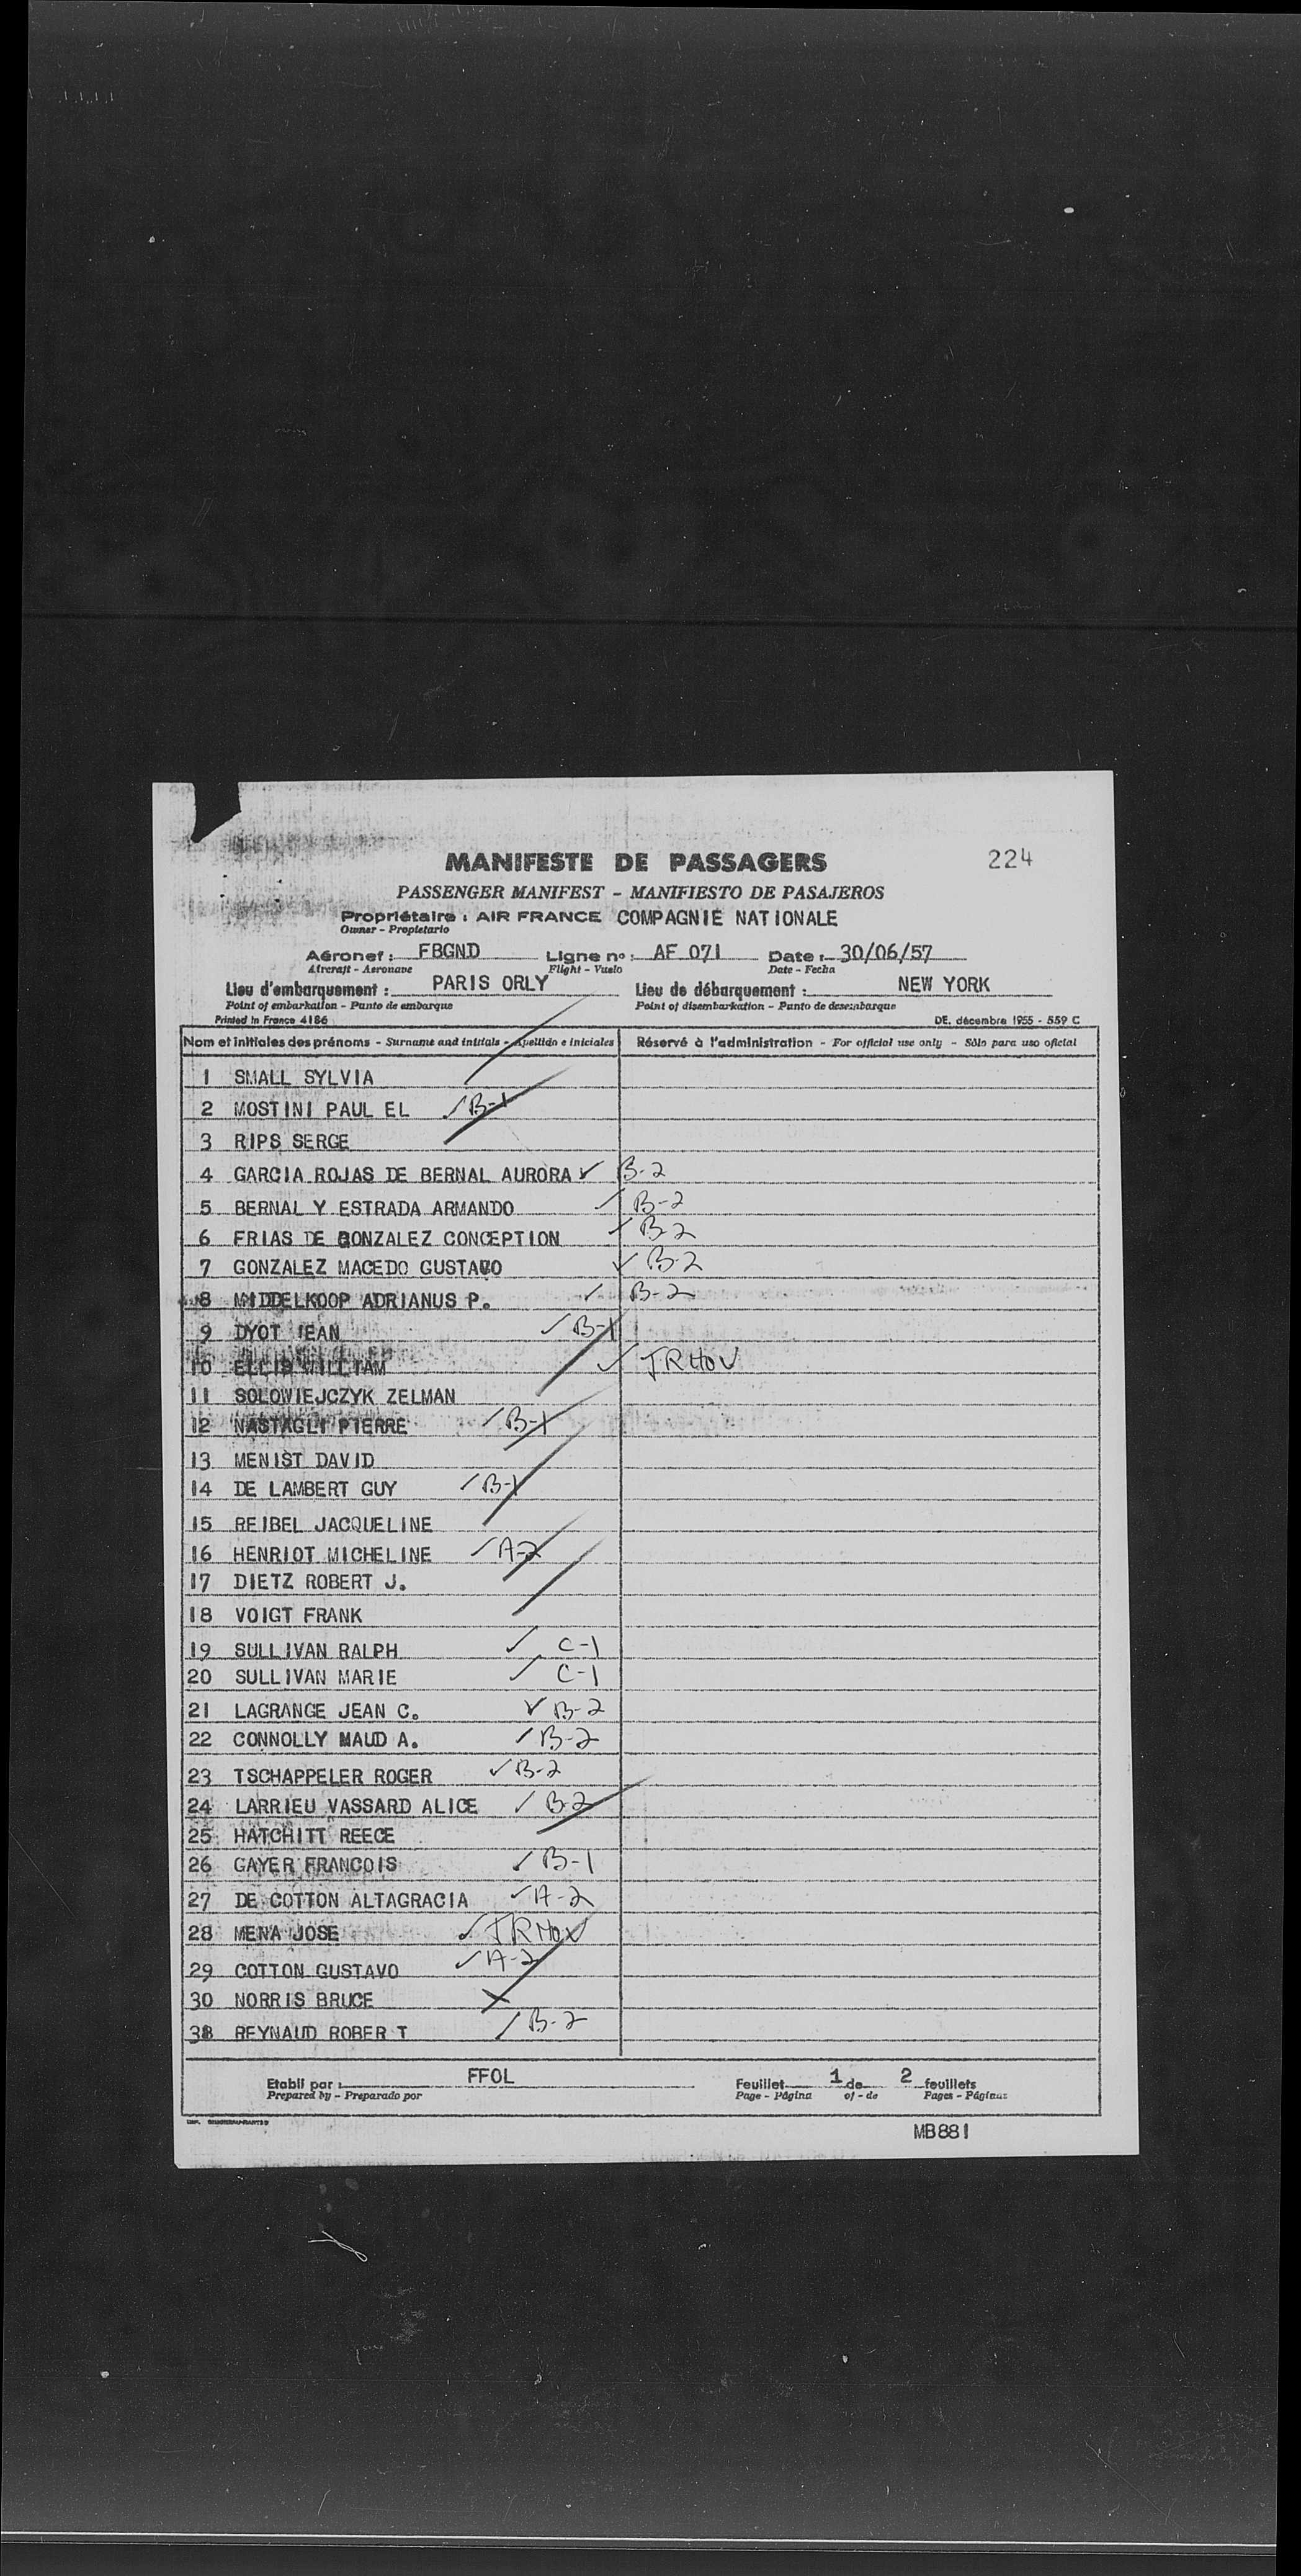 224
MANIFESTE DE PASSAGERS
PASSENGER MANIFEST - MANIFIESTO DE PASAJEROS
Propriétaire : AIR FRANCE COMPAGNIE NATIONALE
Owner - Propietario
Aéronef : FBGND Ligne nº : AF 071 Date : 30/06/57
Aircraft - Aeronave Flight - Vuelo Date - Fecha
Lieu d'embarquement : PARIS ORLY Lieu de débarquement : NEW YORK
Point of embarkation - Punto de embarque Point of disembarkation - Punto de desembarque
Printed in France 4186 DE. décembre 1955 - 559 C
Nom et initiales des prénoms - Surname and initials - Apellido e iniciales Réservé à l'administration - For official use only - Sólo para uso oficial
1 SMALL SYLVIA
2 MOSTINI PAUL EL ✓ B-1
3 RIPS SERGE
4 GARCIA ROJAS DE BERNAL AURORA ✓ B-2
5 BERNAL Y ESTRADA ARMANDO ✓ B-2
6 FRIAS DE GONZALEZ CONCEPTION ✓ B-2
7 GONZALEZ MACEDO GUSTAVO ✓ B-2
8 MIDDELKOOP ADRIANUS P. ✓ B-2
9 DYOT JEAN ✓ B-1
10 ELLIS WILLIAM ✓ TRHOV
11 SOLOWIEJCZYK ZELMAN
12 NASTAGLI PIERRE ✓ B-1
13 MENIST DAVID
14 DE LAMBERT GUY ✓ B-1
15 REIBEL JACQUELINE
16 HENRIOT MICHELINE ✓ A-2
17 DIETZ ROBERT J.
18 VOIGT FRANK
19 SULLIVAN RALPH ✓ C-1
20 SULLIVAN MARIE ✓ C-1
21 LAGRANGE JEAN C. ✓ B-2
22 CONNOLLY MAUD A. ✓ B-2
23 TSCHAPPELER ROGER ✓ B-2
24 LARRIEU VASSARD ALICE ✓ B-2
25 HATCHITT REECE
26 GAYER FRANCOIS ✓ B-1
27 DE COTTON ALTAGRACIA ✓ A-2
28 MENA JOSE ✓ TRHOV
29 COTTON GUSTAVO ✓ A-2
30 NORRIS BRUCE
REYNAUD ROBER T ✓ B-2
Etabli par : FFOL Feuillet 1 de 2 feuillets
Prepared by - Preparado por Page - Página of - de Pages - Páginas
MB881